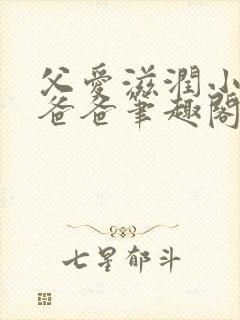 父爱滋润小
爸爸笔趣阁
七星郁斗